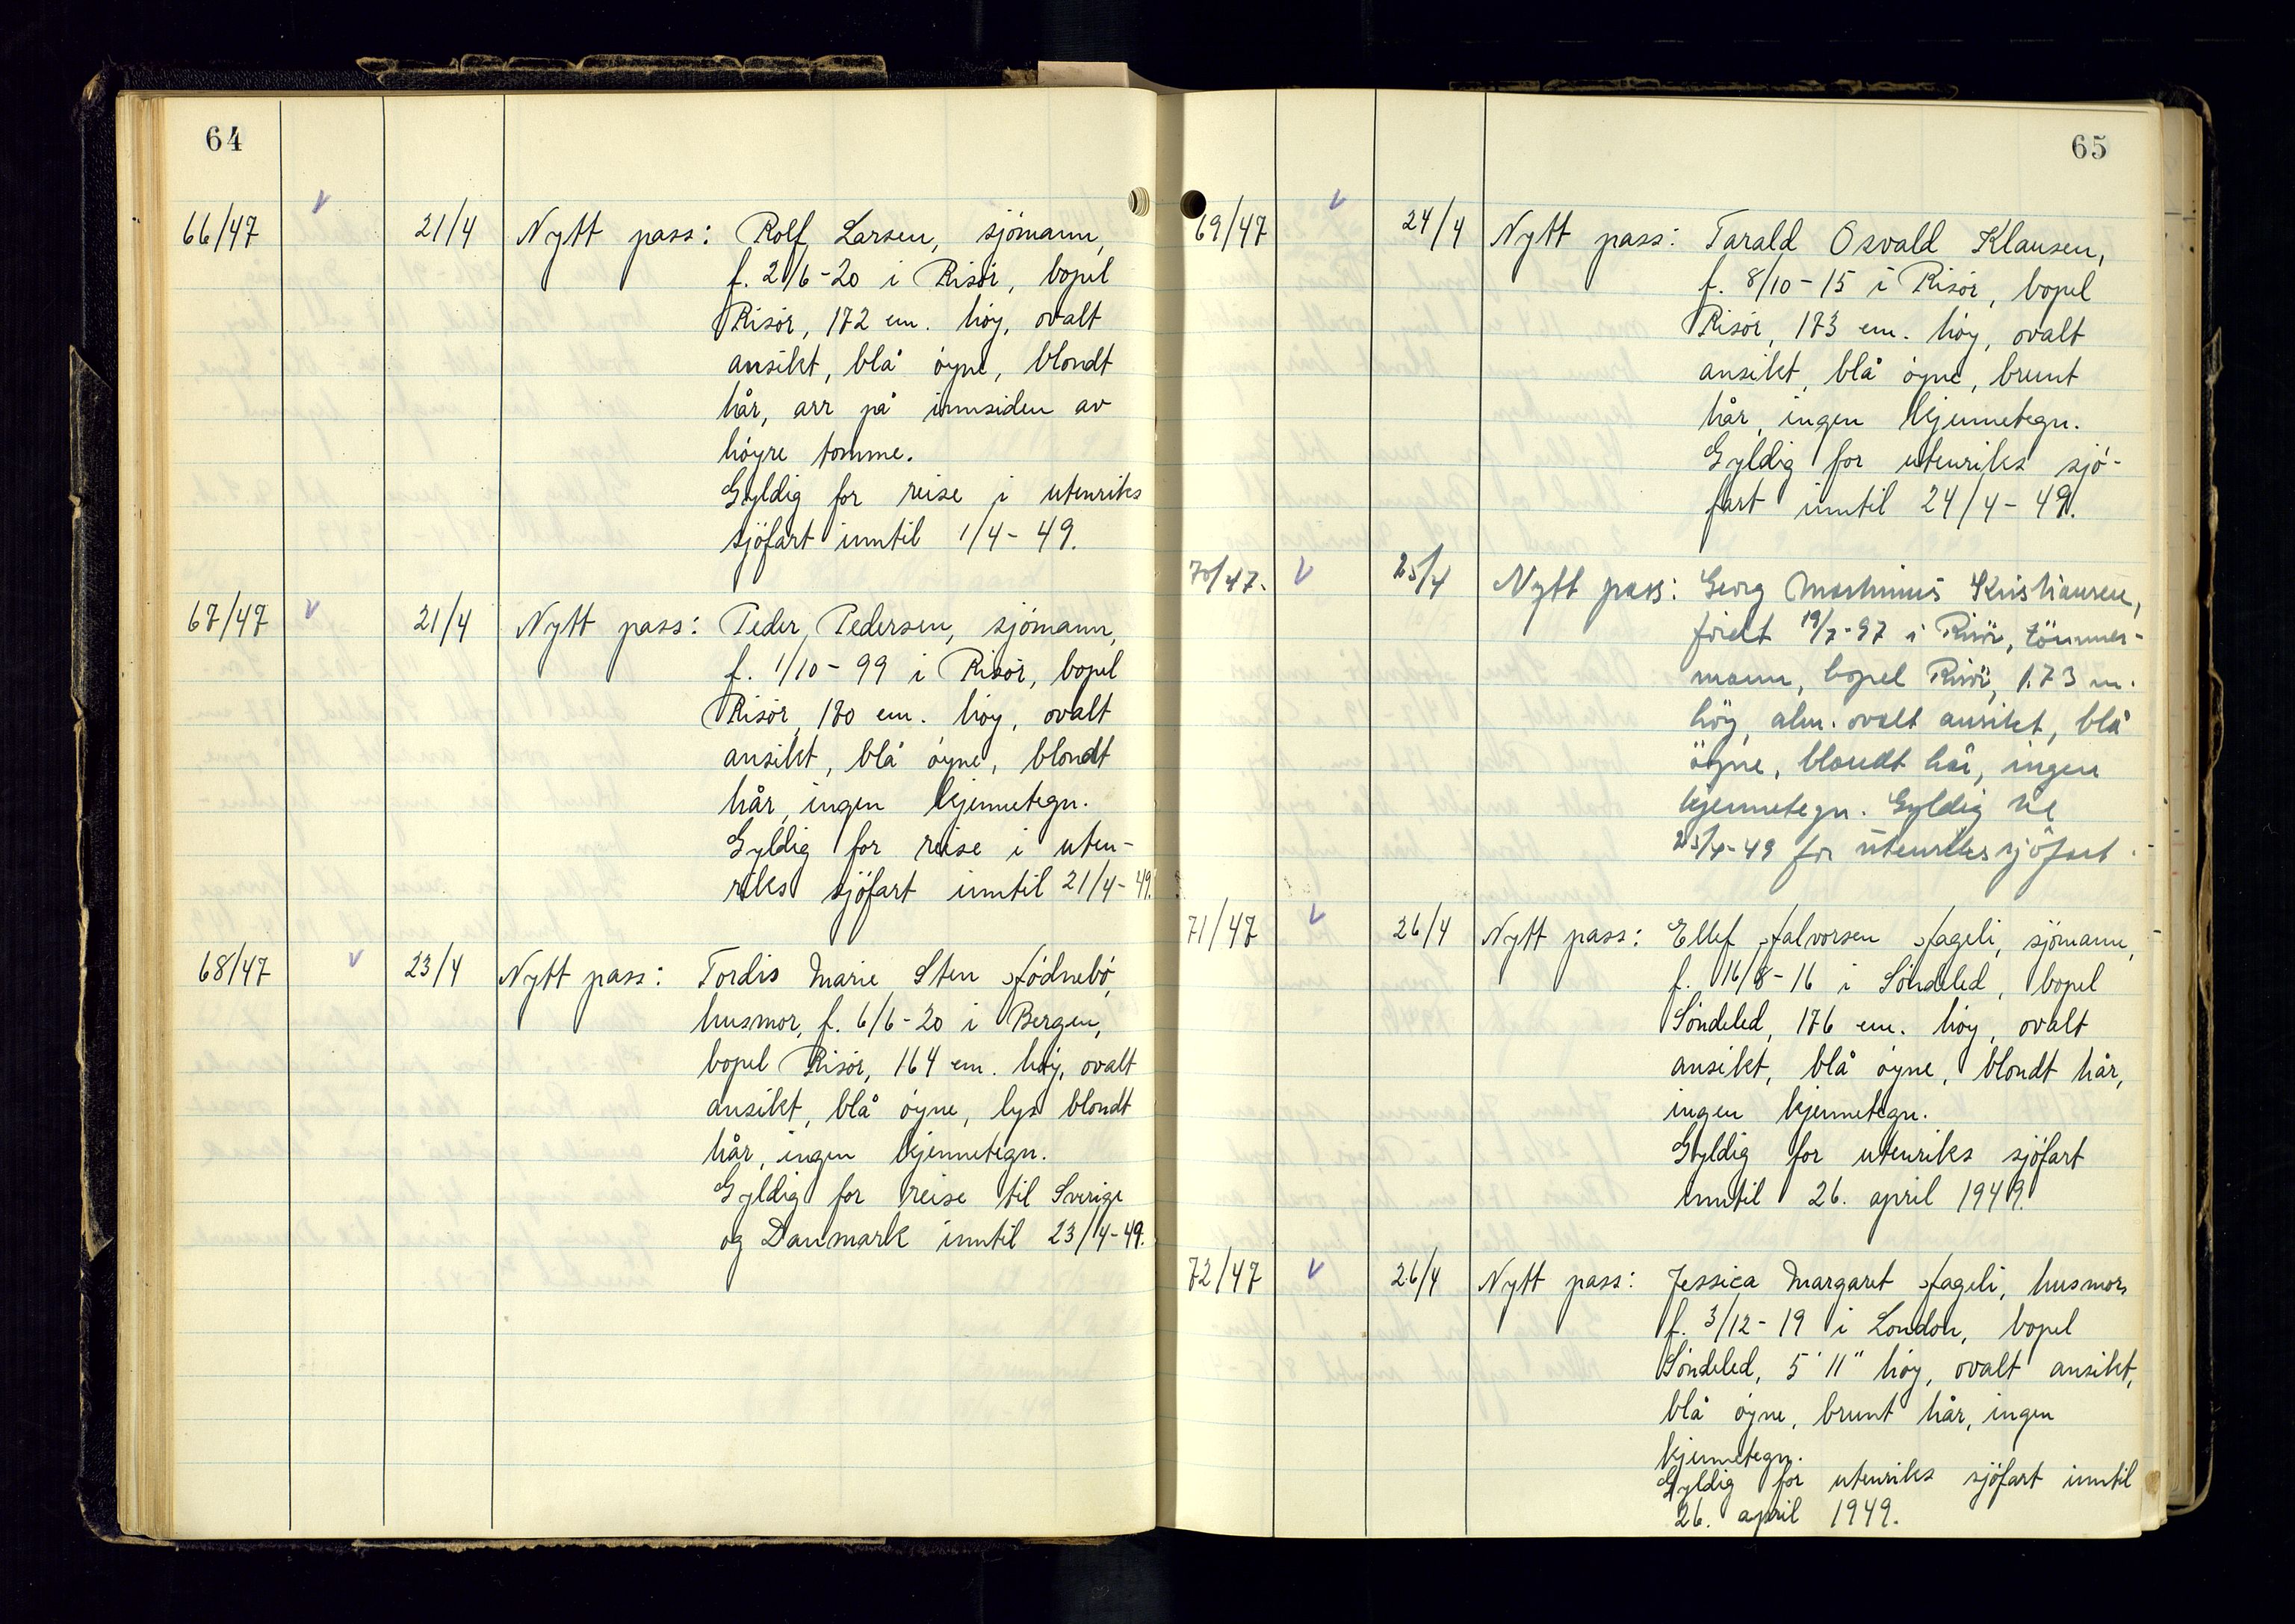 64
66/47 V 21/4 Nytt pass: Rolf Larsen, sjömann,
f. 21/6-20 i Risör, bopel
Risör, 172 cm. höy, ovalt
ansikt, blå öyne, blondt
hår, arr på innsiden av
höyre tomme.
Gyldig for reise i utenriks
sjöfart inntil 1/4-49.
67/47 V 21/4 Nytt pass: Peder Pedersen, sjömann,
f. 1/10-99 i Risör, bopel
Risör, 180 cm. höy, ovalt
ansikt, blå öyne, blondt
hår, ingen kjennetegn.
Gyldig for reise i uten-
riks sjöfart inntil 21/4-49.
68/47 V 23/4 Nytt pass: Tordis Marie Sten Hödnebö,
husmor, f. 6/6-20 i Bergen,
bopel Risör, 164 cm. höy, ovalt
ansikt, blå öyne, lys blondt
hår, ingen kjennetegn.
Gyldig for reise til Sverige
og Danmark inntil 23/4-49.
65
69/47 V 24/4 Nytt pass: Tarald Osvald Klausen,
f. 8/10-15 i Risör, bopel
Risör, 173 cm. höy, ovalt
ansikt, blå öyne, brunt
hår, ingen kjennetegn.
Gyldig for utenriks sjö-
fart inntil 24/4-49.
70/47. V 25/4 Nytt pass: Georg Martinius Kristiansen,
födt 19/7-97 i Risör, tömmer-
mann, bopel Risör, 1.73 m.
höy, alm. ovalt ansikt, blå
öyne, blondt hår, ingen
kjennetegn. Gyldig til
25/4-49 for utenriks sjöfart.
71/47 V 26/4 Nytt pass: Ellef Halvorsen Hageli, sjömann,
f. 16/8-16 i Söndeled, bopel
Söndeled, 176 cm. höy, ovalt
ansikt, blå öyne, blondt hår,
ingen kjennetegn.
Gyldig for utenriks sjöfart
inntil 26. april 1949.
72/47 V 26/4 Nytt pass: Jessica Margaret Hageli, husmor,
f. 3/12-19 i London, bopel
Söndeled, 5' 11" höy, ovalt ansikt,
blå öyne, brunt hår, ingen
kjennetegn.
Gyldig for utenriks sjöfart inntil
26. april 1949.